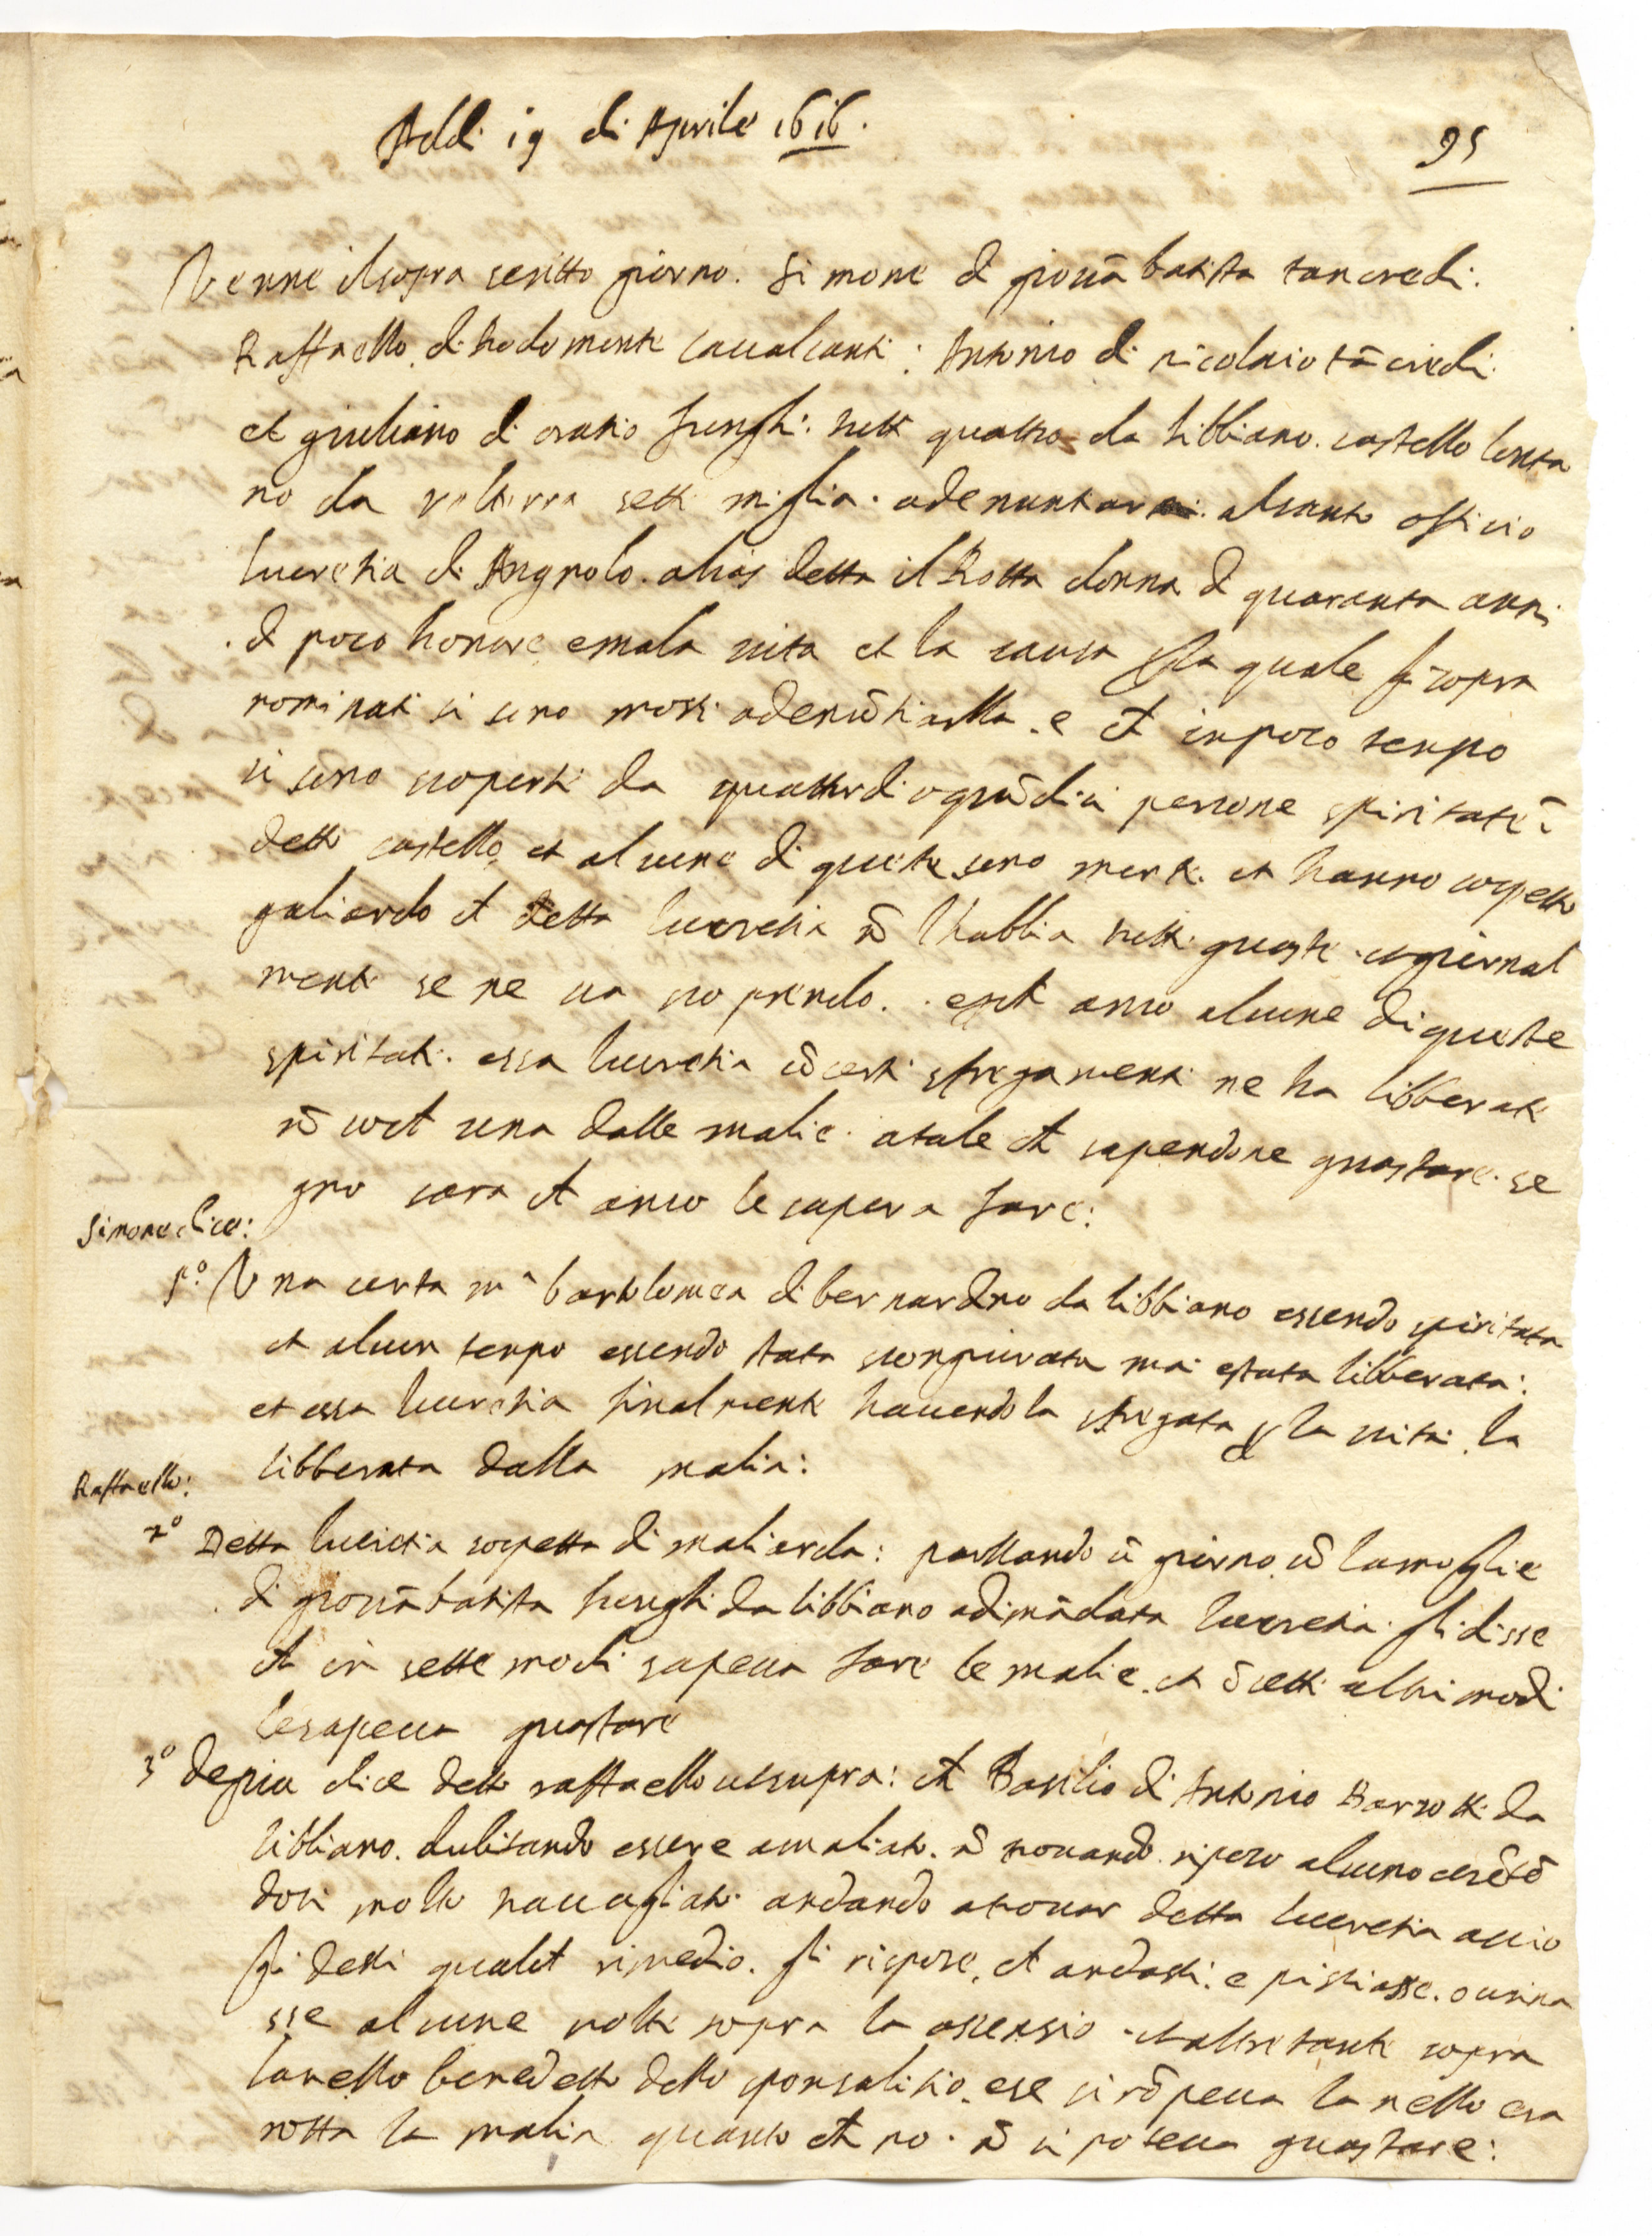 Addi 19 di Aprile 1616.
95
Venne il sopra scritto giorno. Simone di giovā batista tancredi.
Raffaello di Rodomonte cavalcanti: Antonio di nicolaio tācredi
et giuliano di oratio funghi: tutti quattro da libbiano. castello lonta
no da volterra sette miglia. a denuntiar al santo offitio
lucretia di Angnolo. alias detta il Rotta donna di quaranta anni
di poco honore e mala vita et la causa p la quale gli sopra
nominati si sono mossi a denūtiarlla. e ch in poco tempo
si sono scoperti da quattordici o quīdici persone spiritate ī
detto castello et alcune di queste sono morte. et hanno sospetto
galiardo ch detta lucretia nō l'habbia tutte guaste. et giornal
mente se ne va scoprendo. et anco alcune di queste
spiritate. essa lucretia cō certi stregamenti ne ha libberate
nō soch una dalle malie. a tale ch sapendone guastare. se
gno sara ch anco le sapera fare:
Simone dice:
p.º Una certa mª bartolomea di bernardino da libbiano essendo spiritata
et alcun tempo essendo stata scongiurata mai e stata libberata:
et essa lucretia finalmente havendola stregata p la vita la
libberata dalla malia:
Raffaello:
2º Detta lucretia sospetta di maliarda: parllando ū giorno cō la moglie
di giovā batista funghi da libbiano adimādata lucretia gli disse
ch in sette modi sapeva fare le malie. et ī sette altri modi
le sapeva guastare
3º De piu dice detto raffaello ut supra: ch Basilio di Antonio Barzotti da
libbiano. dubitando essere amaliato. nō trovando riposo alcuno
molto andando a trovar detta lucretia accio
gli dessi qualch rimedio. gli rispose, ch andassi. e pisciasse. o urina
sse alcune volte sopra la assensio et altre tante sopra
lanello benedetto dello sponsalitio. e se si rōpeva la nello era
rotta la malia quanto ch no. nō si poteva guastare: